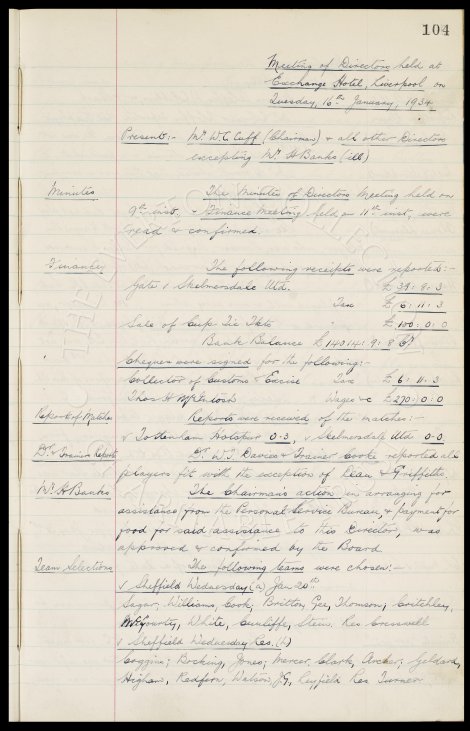 104
Meeting of Directors held at
Exchange Hotel, Liverpool on
Tuesday, 16th January, 1934
Present:- Mr. W.C. Cuff (Chairman) & all other Directors
excepting Mr. H Banks (ill)
Minutes The Minutes of Directors Meeting held on
9th inst. & Finance Meeting held on 11th inst. were
read & confirmed.
Finance The following receipts were reported:-
Gate v Skelmersdale Utd. £ 39: 9: 3
Tax £ 6: 11: 3
Sale of Cup Tie Tkts £ 100: 0: 0
Bank Balance £ 14014: 9: 8 Cr
Cheques were signed for the following:-
Collector of Customs & Excise Tax £ 6: 11: 3
Thos H McIntosh Wages &c £ 270: 0: 0
Report of Matches Reports were received of the matches:-
v Tottenham Hotspur 0-3, v Skelmersdale Utd 0-0.
Dr. & Trainers Reports Dr. W.J. Davies & Trainer Cooke reported all
players fit with the exception of Dean & Griffiths.
Mr. H Banks The Chairman's action in arranging for
assistance from the Personal Service Bureau & payment for
food for said assistance to this Director, was
approved & confirmed by the Board.
Team Selections The following teams were chosen:-
v Sheffield Wednesday (a) Jan 20th
Sagar; Williams, Cook; Britton, Gee, Thomson; Critchley,
McGourty, White, Cunliffe, Stein. Res Cresswell
v Sheffield Wednesday Res. (h)
Coggins; Bocking, Jones; Mercer, Clark, Archer; Geldard,
Higham, Redfern, Watson J.G, Leyfield Res Turner